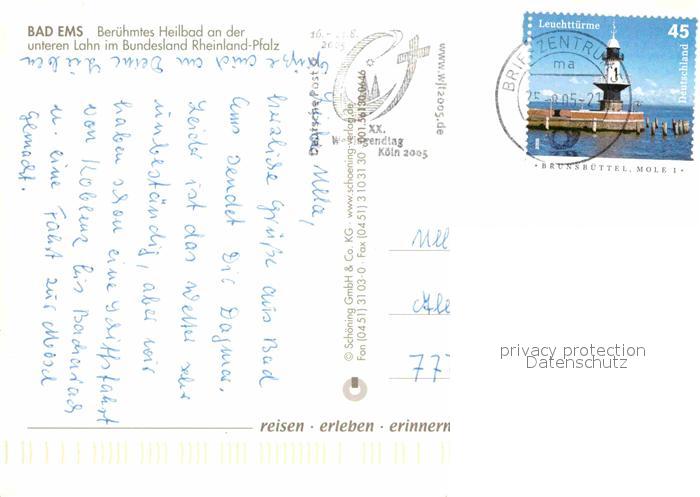 BAD EMS Berühmtes Heilbad an der
unteren Lahn im Bundesland Rheinland-Pfalz
Liebe Ulla,
herzliche Grüße aus Bad
Ems sendet Dir Dagmar.
Leider ist das Wetter sehr
unbeständig, aber wir
haben schon eine Schiffsfahrt
von Koblenz bis Bacharach
u eine Fahrt zur Mosel
gemacht.
Grüße auch an Deine Lieben
© Schöning GmbH & Co. KG · www.schoening-verlag.de
Fon (04 51) 31 03-0 · Fax (04 51) 3 10 31 30
001.56130.0646
16.-21.8.
2005
Deutsche Post
www.wjt2005.de
XX.
Weltjugendtag
Köln 2005
BRIEFZENTRUM
ma
Leuchttürme
45
Deutschland
· BRUNSBÜTTEL, MOLE 1 ·
77
privacy protection
Datenschutz
reisen · erleben · erinnern